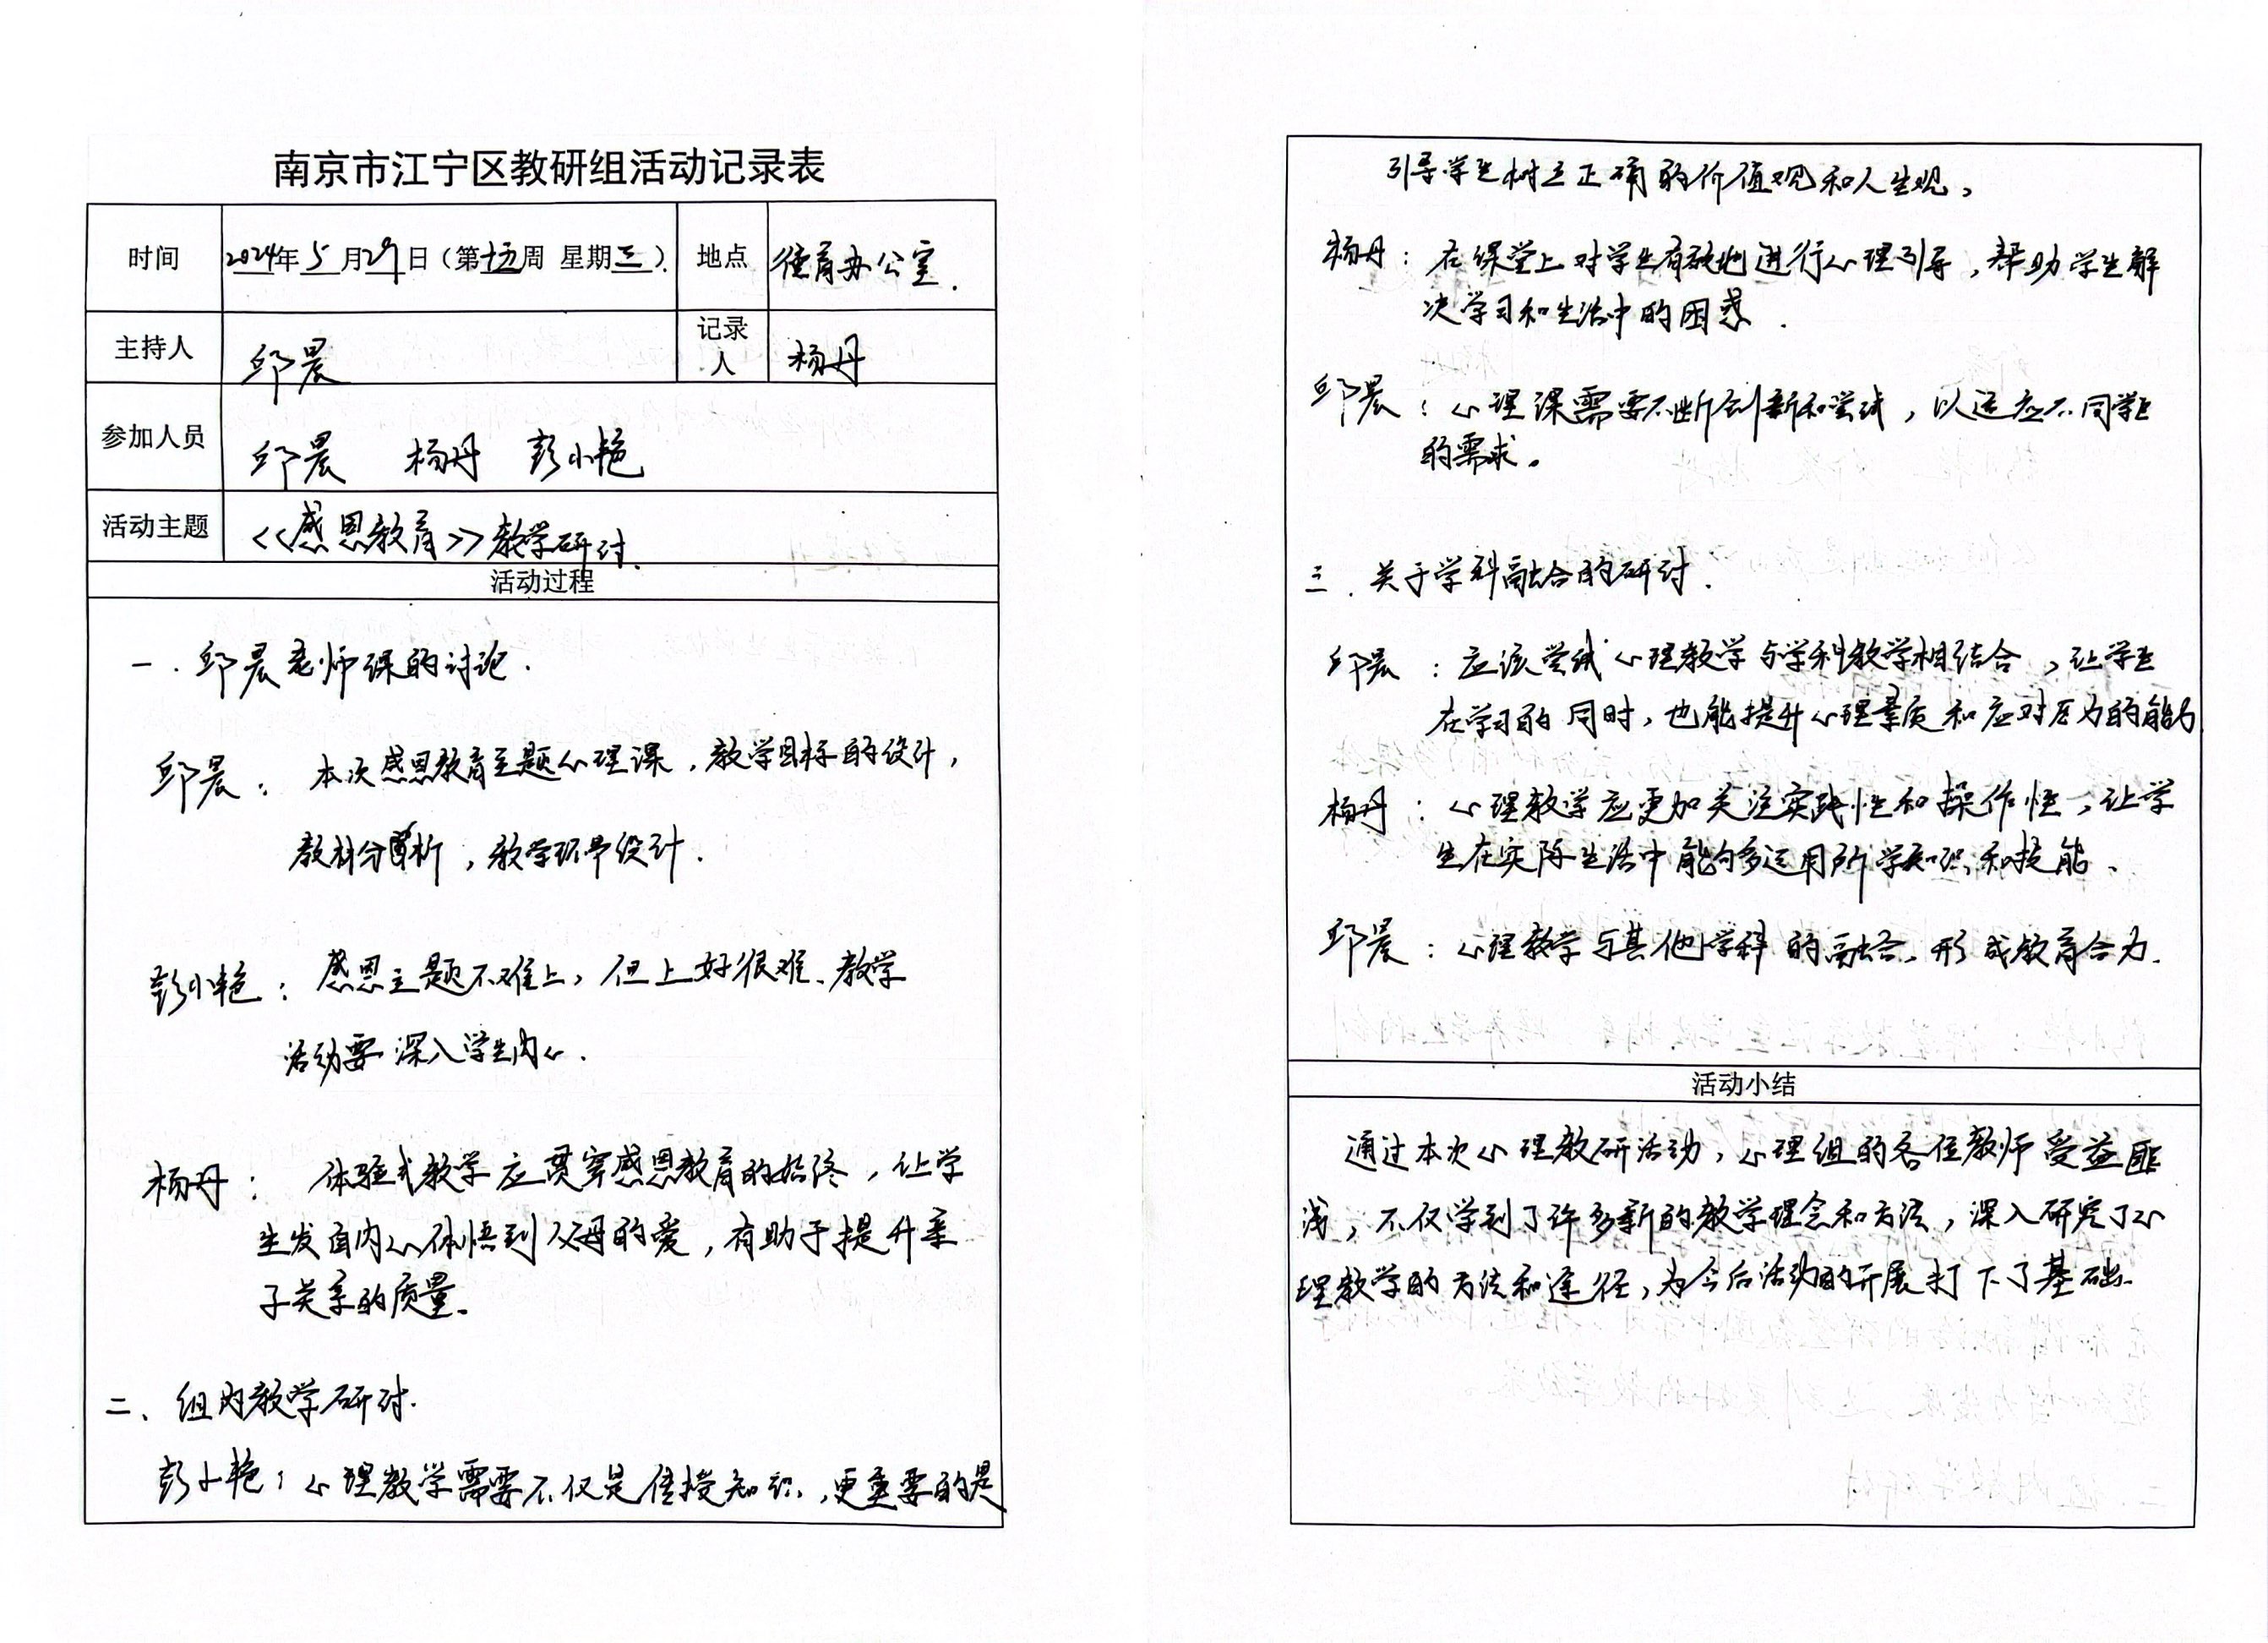 南京市江宁区教研组活动记录表
时间 2024年5月29日（第十五周 星期三） 地点 德育办公室.
主持人 邱晨 记录人 杨丹
参加人员 邱晨 杨丹 彭小艳
活动主题 <<感恩教育>>教学研讨.
活动过程
一. 邱晨老师课的讨论.
邱晨： 本次感恩教育主题心理课，教学目标的设计，
教材分析，教学环节设计.
彭小艳： 感恩主题不难上，但上好很难、教学
活动要深入学生内心.
杨丹： 体验式教学应贯穿感恩教育的始终，让学
生发自内心体悟到父母的爱，有助于提升亲
子关系的质量。
二、组内教学研讨.
彭小艳：心理教学需要不仅是传授知识，更重要的是
引导学生树立正确的价值观和人生观，
杨丹：在课堂上对学生有效地进行心理引导，帮助学生解
决学习和生活中的困惑.
邱晨：心理课需要不断创新和尝试，以适应不同学生
的需求。
三. 关于学科融合的研讨.
邱晨：应该尝试心理教学与学科教学相结合，让学生
在学习的同时，也能提升心理素质和应对压力的能力
杨丹：心理教学应更加关注实践性和操作性，让学
生在实际生活中能够多运用所学知识和技能、
邱晨：心理教学与其他学科的融合，形成教育合力.
活动小结
通过本次心理教研活动，心理组的各位教师受益匪
浅，不仅学到了许多新的教学理念和方法，深入研究了心
理教学的方法和途径，为今后活动的开展打下了基础.